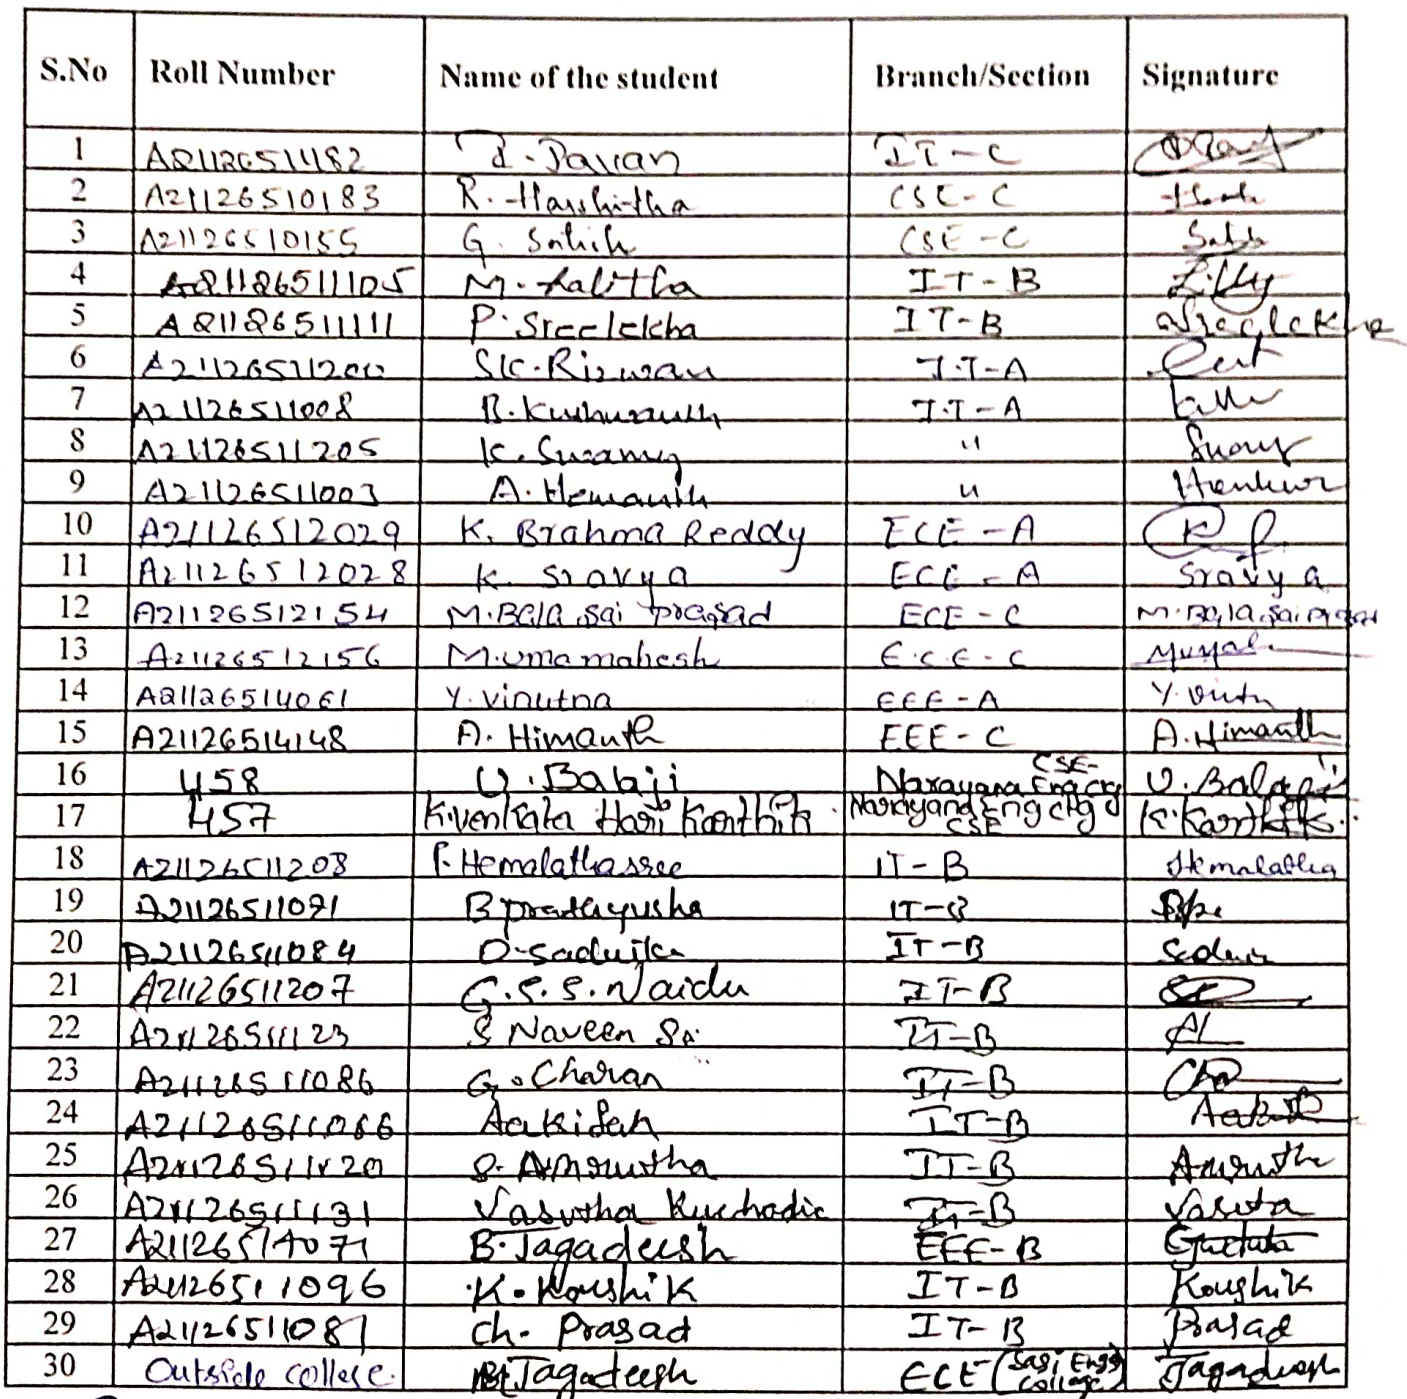 S.No Roll Number Name of the student Branch/Section Signature
1 A21126511182 P. Pavan IT-C
2 A21126510183 R. Harshitha CSE-C
3 A21126510155 G. Satish CSE-C
4 A21126511105 M. Lalitha IT-B Lilly
5 A21126511111 P. Sreelekha IT-B Sreelekha
6 A21126511200 SK. Rizwan I.T-A
7 A21126511008 I.T-A
8 A21126511205 K. Swamy "
9 A21126511003 A. Hemanth "
10 A21126512029 K. Brahma Reddy ECE-A
11 A21126512028 K. Sravya ECE-A Sravya
12 A21126512154 M. Bala Sai Prasad ECE-C M. Bala Sai Prasad
13 A21126512156 M. Uma mahesh E.C.E-C
14 A21126514061 Y. Vinutna EEE-A
15 A21126514148 A. Himanth EEE-C A. Himanth
16 458 U. Balaji CSE-Narayana Eng clg U. Balaji
17 457 K. Venkata Hari Karthik Narayana Eng clg CSE K. Karthik
18 A21126511208 P. Hemalathasree IT-B Hemalatha
19 A21126511071 B prathyusha IT-B
20 A21126511084 D. Sadwika IT-B
21 A21126511207 G.S.S. Naidu IT-B
22 A21126511123 S Naveen Sai IT-B
23 A21126511086 G. Charan IT-B
24 A21126511066 Aakifah IT-B
25 A21126511120 S. Amrutha IT-B Amrutha
26 A21126511131 Vasutha IT-B Vasuta
27 A21126514071 B. Jagadeesh EEE-B
28 A21126511096 K. Koushik IT-B Koushik
29 A21126511081 Ch. Prasad IT-B Prasad
30 Outside college. Jagadeesh ECE (Sasi Engg College) Jagadeesh